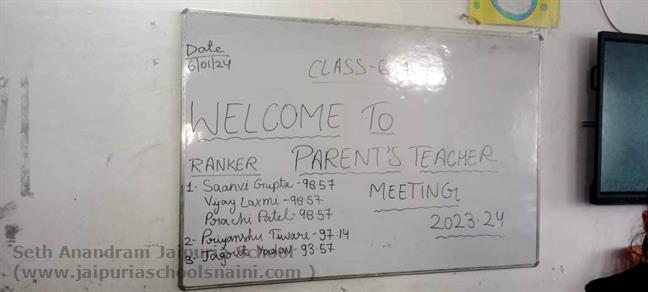 Date
6/01/24
CLASS-6
WELCOME TO
PARENT'S TEACHER
MEETING
2023-24
RANKER
1- Saanvi Gupta - 98.57
Vijay Laxmi - 98.57
Prachi Patel - 98.57
2- Priyanshu Tiwari - 97.14
3- Jagrati Yadav - 93.57
Seth Anandram Jaipuria School
(www.jaipuriaschoolsnaini.com )